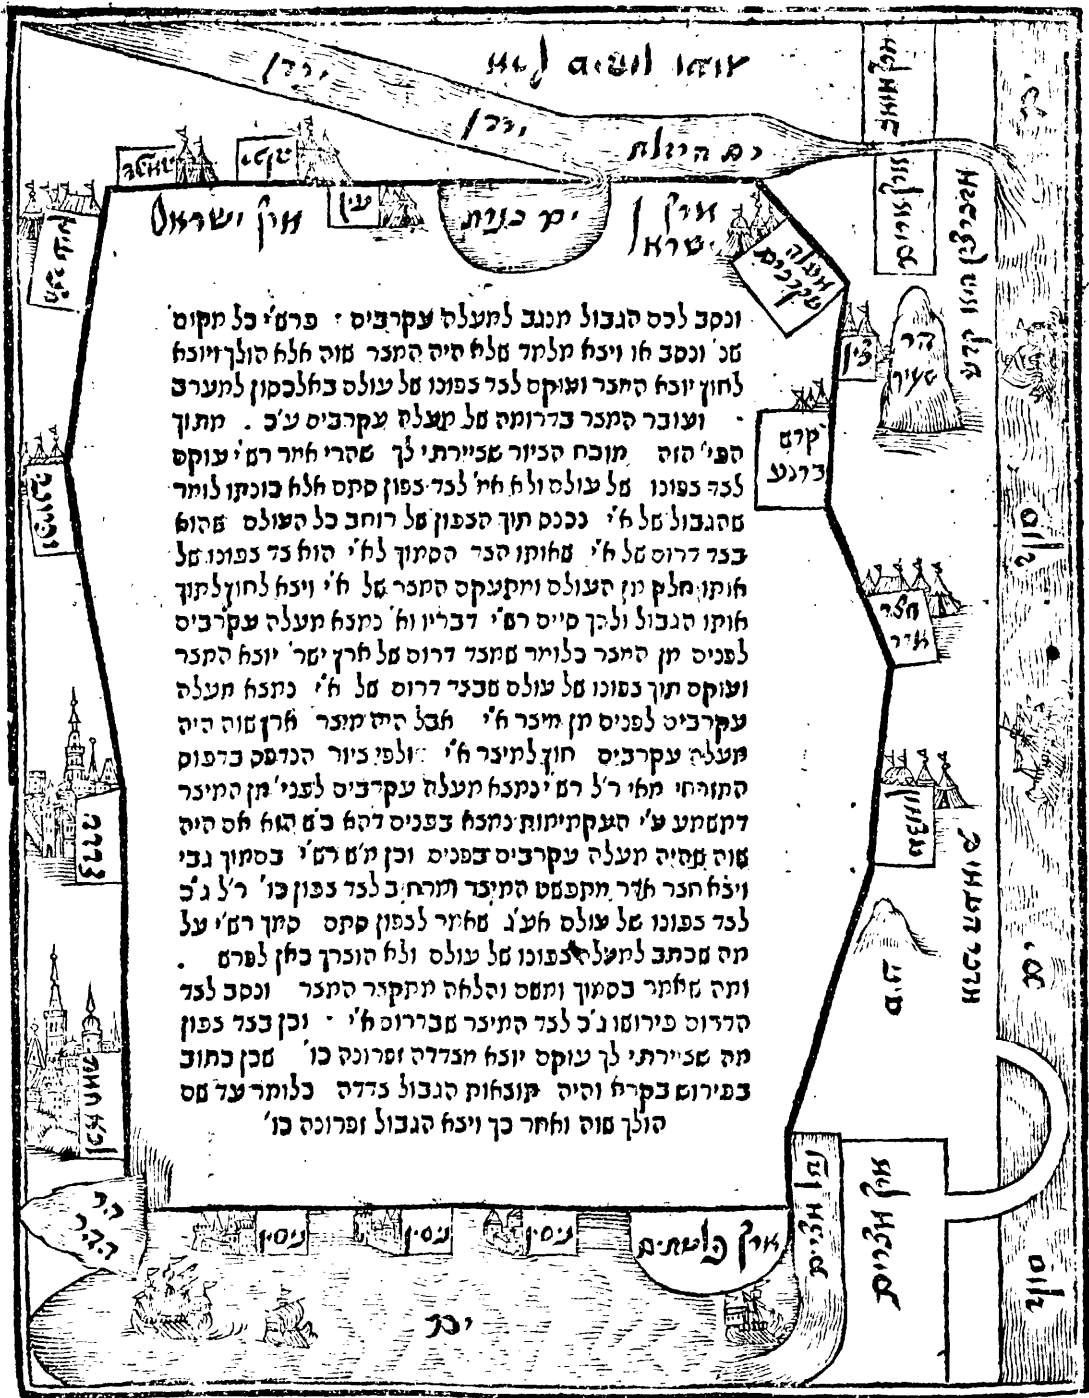 ירדן
ירדן
ים המלח
ארץ מואב
ארץ אדום
שפם
עין
ארץ ישראל
ים כנרת
ארץ ישראל
מעלה עקרבים
צין
הר שעיר
קדש ברנע
חצר אדר
עצמון
זפרונה
צדדה
לבא חמת
הר ההר
ניסין
ניסין
ניסין
ארץ פלשתים
נחל מצרים
ארץ מצרים
ים סוף
ונסב לכם הגבול מנגב למעלה עקרבים · פרש"י כל מקום
שנ' ונסב או ויצא מלמד שלא היה המצר שוה אלא הולך ויוצא
לחוץ יוצא המצר ועוקם לצד צפונו של עולם באלכסון למערב
ועובר המצר בדרומה של מעלה עקרבים ע"כ . מתוך
הפי' הזה מוכח הציור שציירתי לך שהרי אמר רש"י עוקם
לצד צפונו של עולם ולא אמ' לצד צפון סתם אלא כוונתו לומר
שהגבול של א"י נכנס תוך הצפון של רוחב כל העולם שהוא
בצד דרום של א"י שאותו הצד הסמוך לא"י הוא צד צפונו של
אותו חלק מן העולם ומתעקם המצר של א"י ויצא לחוץ לתוך
אותו הגבול ולכך סיים רש"י דבריו וא' נמצא מעלה עקרבים
לפנים מן המצר כלומר שמצד דרום של ארץ ישר' יוצא המצר
ועוקם תוך צפונו של עולם שבצד דרום של א"י נמצא מעלה
עקרבים לפנים מן מיצר א"י אבל היה מיצר ארץ שוה היה
מעלה עקרבים חוץ למיצר א"י ולפי ציור הנדפס בדפוס
המזרחי מאי ר"ל רש"י נמצא מעלה עקרבים לפני' מן המיצר
דמשמע ע"י העקמימות נמצא בפנים דהא כ"ש הוא אם היה
שוה שהיה מעלה עקרבים בפנים וכן מ"ש רש"י בסמוך גבי
ויצא חצר אדר מתפשט המיצר ומרחיב לצד צפון כו' ר"ל ג"כ
לצד צפונו של עולם אע"ג שאמר לצפון סתם סמך רש"י על
מה שכתב למעלה צפונו של עולם ולא הוצרך כאן לפרש .
ומה שאמר בסמוך ומשם והלאה מתקצר המצר ונסב לצד
הדרום פירושו ג"כ לצד המיצר שבדרום א"י · וכן בצד צפון
מה שציירתי לך עוקם יוצא מצדדה זפרונה כו' שכן כתוב
בפירוש בקרא והיה תוצאות הגבול צדדה כלומר עד שם
הולך שוה ואחר כך ויצא הגבול זפרונה כו'